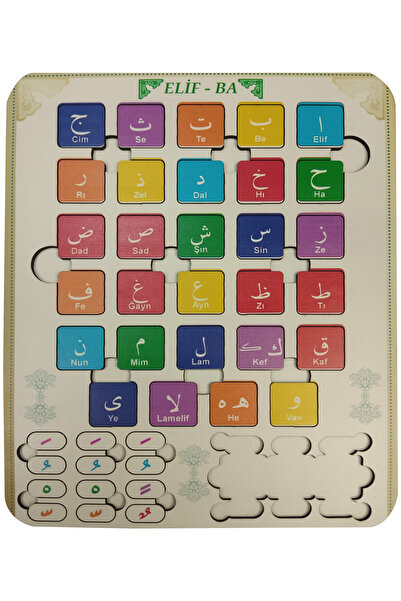 ELİF - BA
ا ب ت ث ج
Elif Be Te Se Cim
ح خ د ذ ر
Ha Hı Dal Zel Rı
ز س ش ص ض
Ze Sin Şın Sad Dad
ط ظ ع غ ف
Tı Zı Ayn Gayn Fe
ق ك ل م ن
Kaf Kef Lam Mim Nun
و ه لا ى
Vav He Lamelif Ye